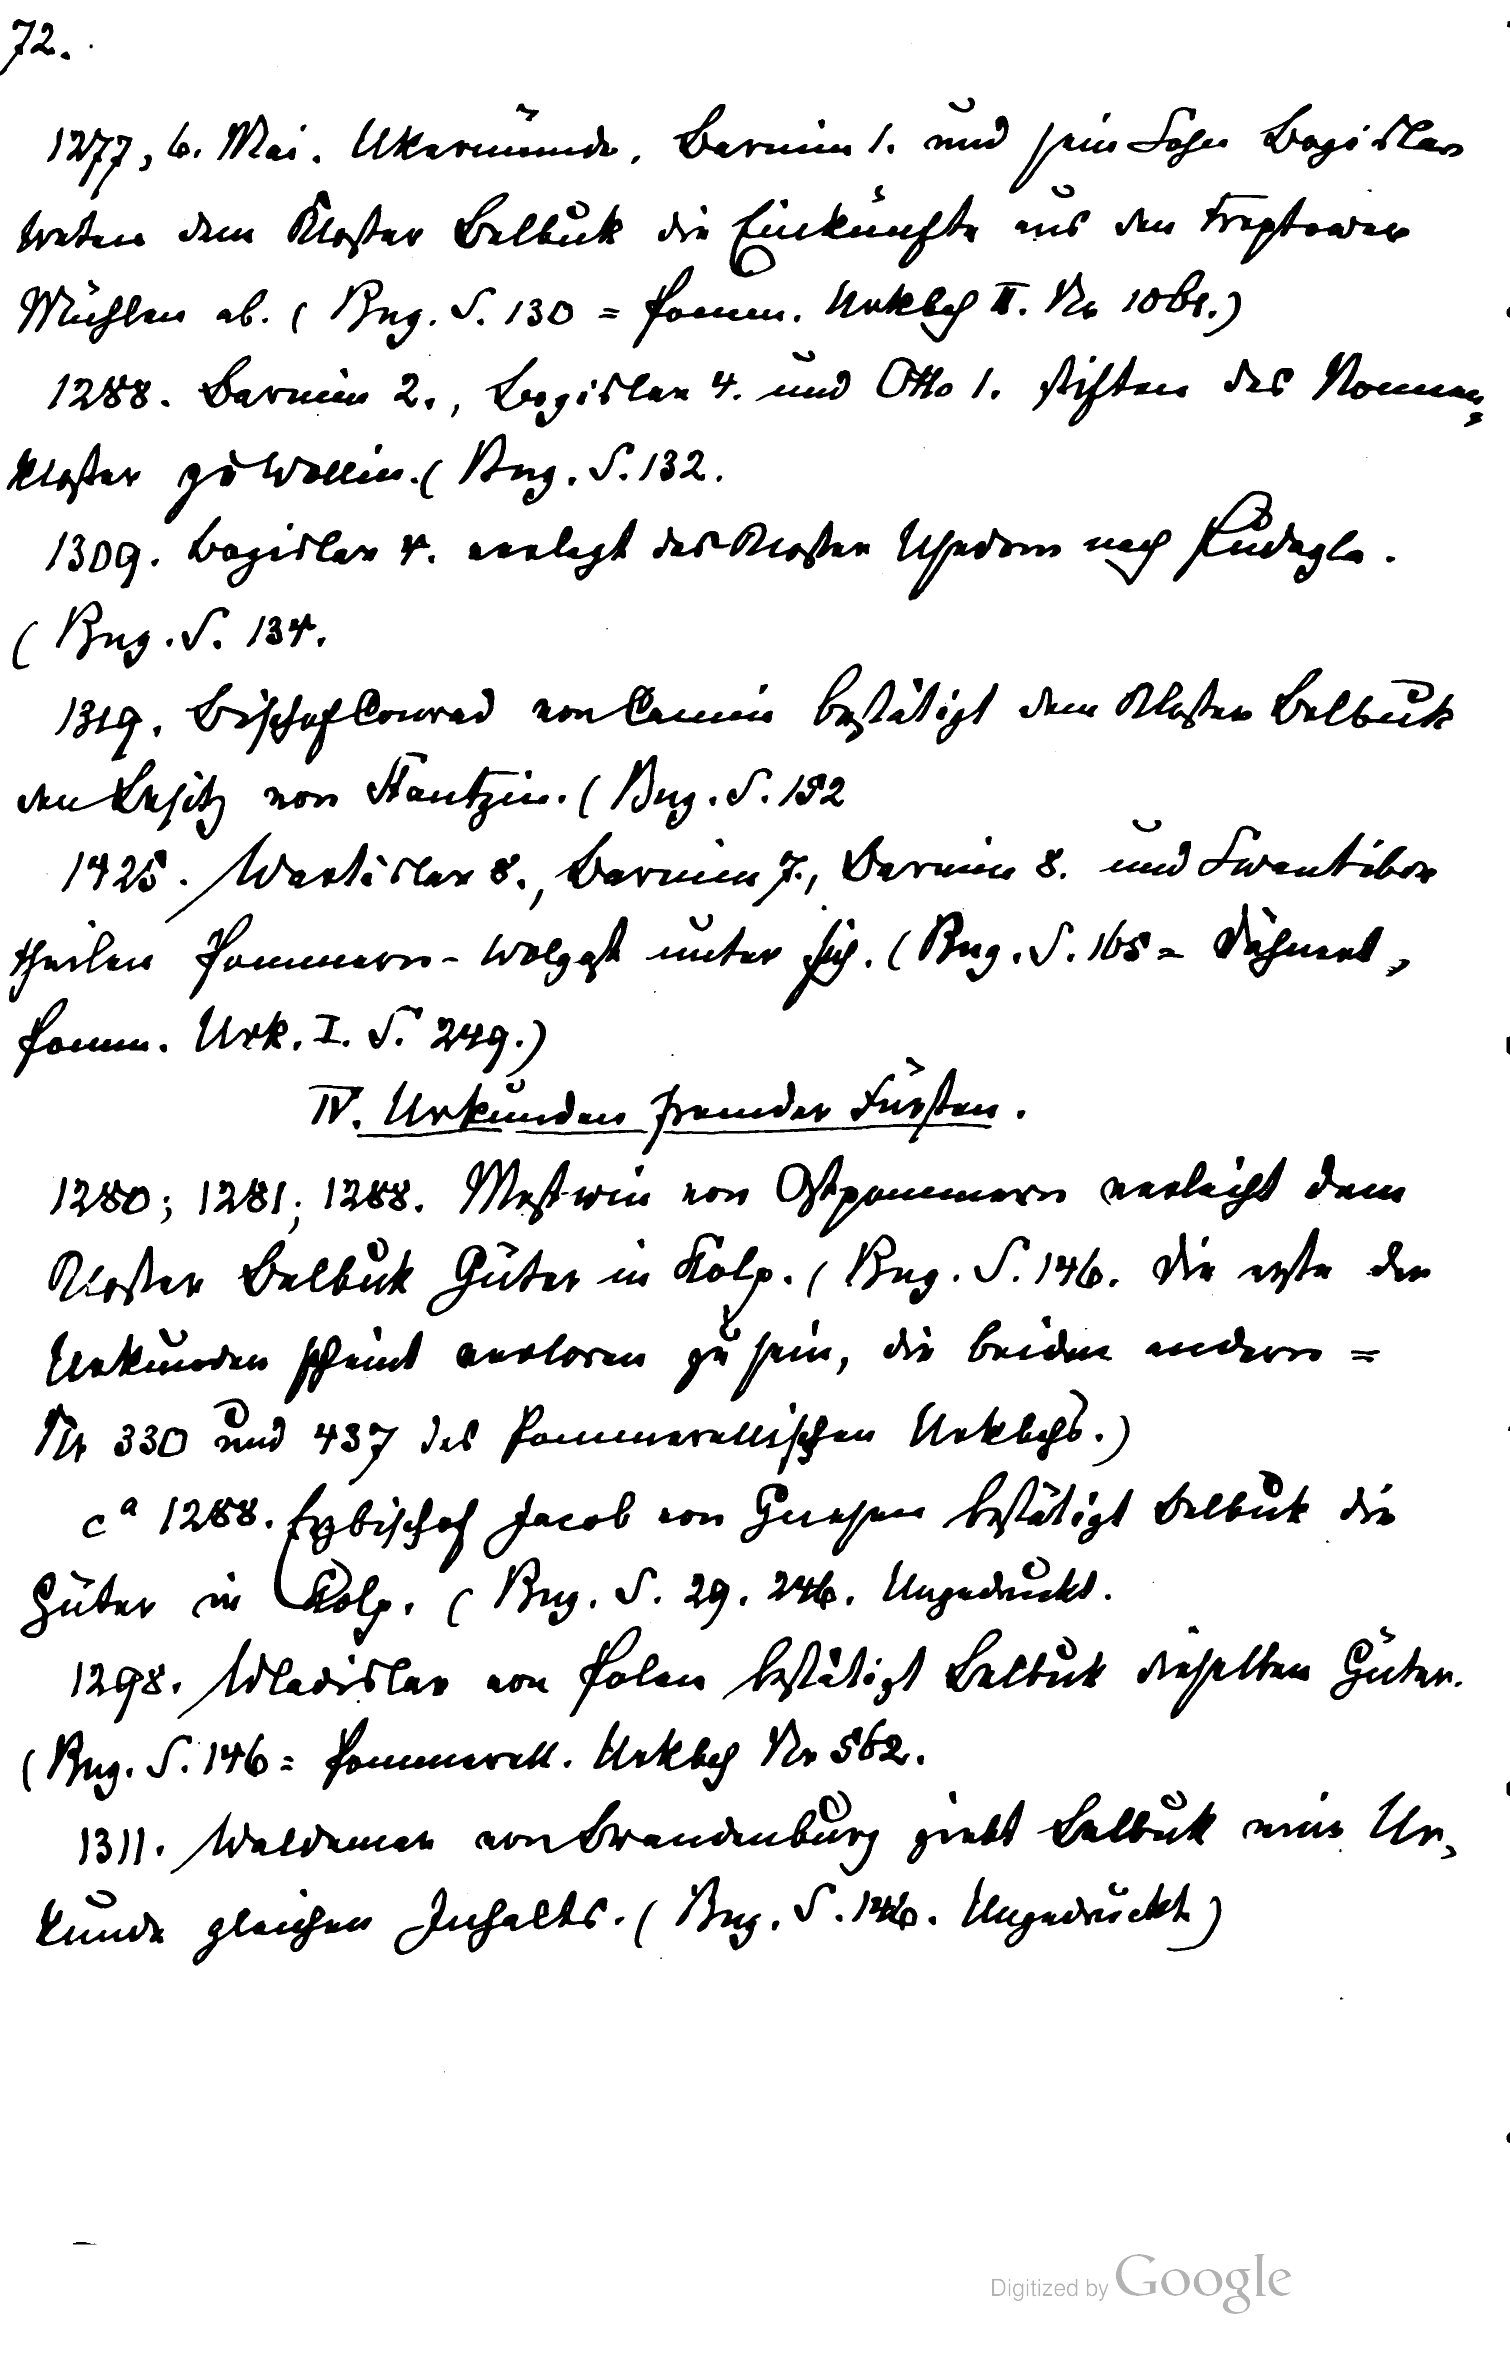 72.
1277, 6. Mai. Ukermünde. Barnim 1. und sein Sohn Bogislav
treten dem Kloster Belbuk die Einkünfte aus den Treptower
Mühlen ab. (Bug. S. 130 = Pomm. Urkbch II. Nr 1061.)
1288. Barnim 2., Bogislav 4. und Otto 1. stiften das Nonnen-
kloster zu Wollin. (Bug. S. 132.
1309. Bogislav 4. verlegt das Kloster Usedom nach Pudagla.
(Bug. S. 134.
1319. Bischof Conrad von Camin bestätigt dem Kloster Belbuk
den Besitz von Kantzin. (Bug. S. 152
1425. Wartislav 8., Barnim 7., Barnim 8. und Swantibor
theilen Pommern-Wolgast unter sich. (Bug. S. 165 = Dähnert,
Pomm. Urk. I. S. 249.)
IV. Urkunden fremder Fürsten.
1280; 1281; 1288. Mestwin von Ostpommern verleiht dem
Kloster Belbuk Güter in Kolp. (Bug. S. 146. Die erste der
Urkunden scheint verloren zu sein, die beiden andern =
Nr 330 und 437 des Pommerellischen Urkbchs.)
ca 1288. Erzbischof Jacob von Gnesen bestätigt Belbuk die
Güter in Kolp. (Bug. S. 29. 246. Ungedruckt.
1298. Wladislav von Polen bestätigt Belbuk dieselben Güter.
(Bug. S. 146 = Pommerell. Urkbch Nr 562.
1311. Waldemar von Brandenburg giebt Belbuk eine Ur-
kunde gleichen Inhalts. (Bug. S. 146. Ungedruckt)
Digitized by Google